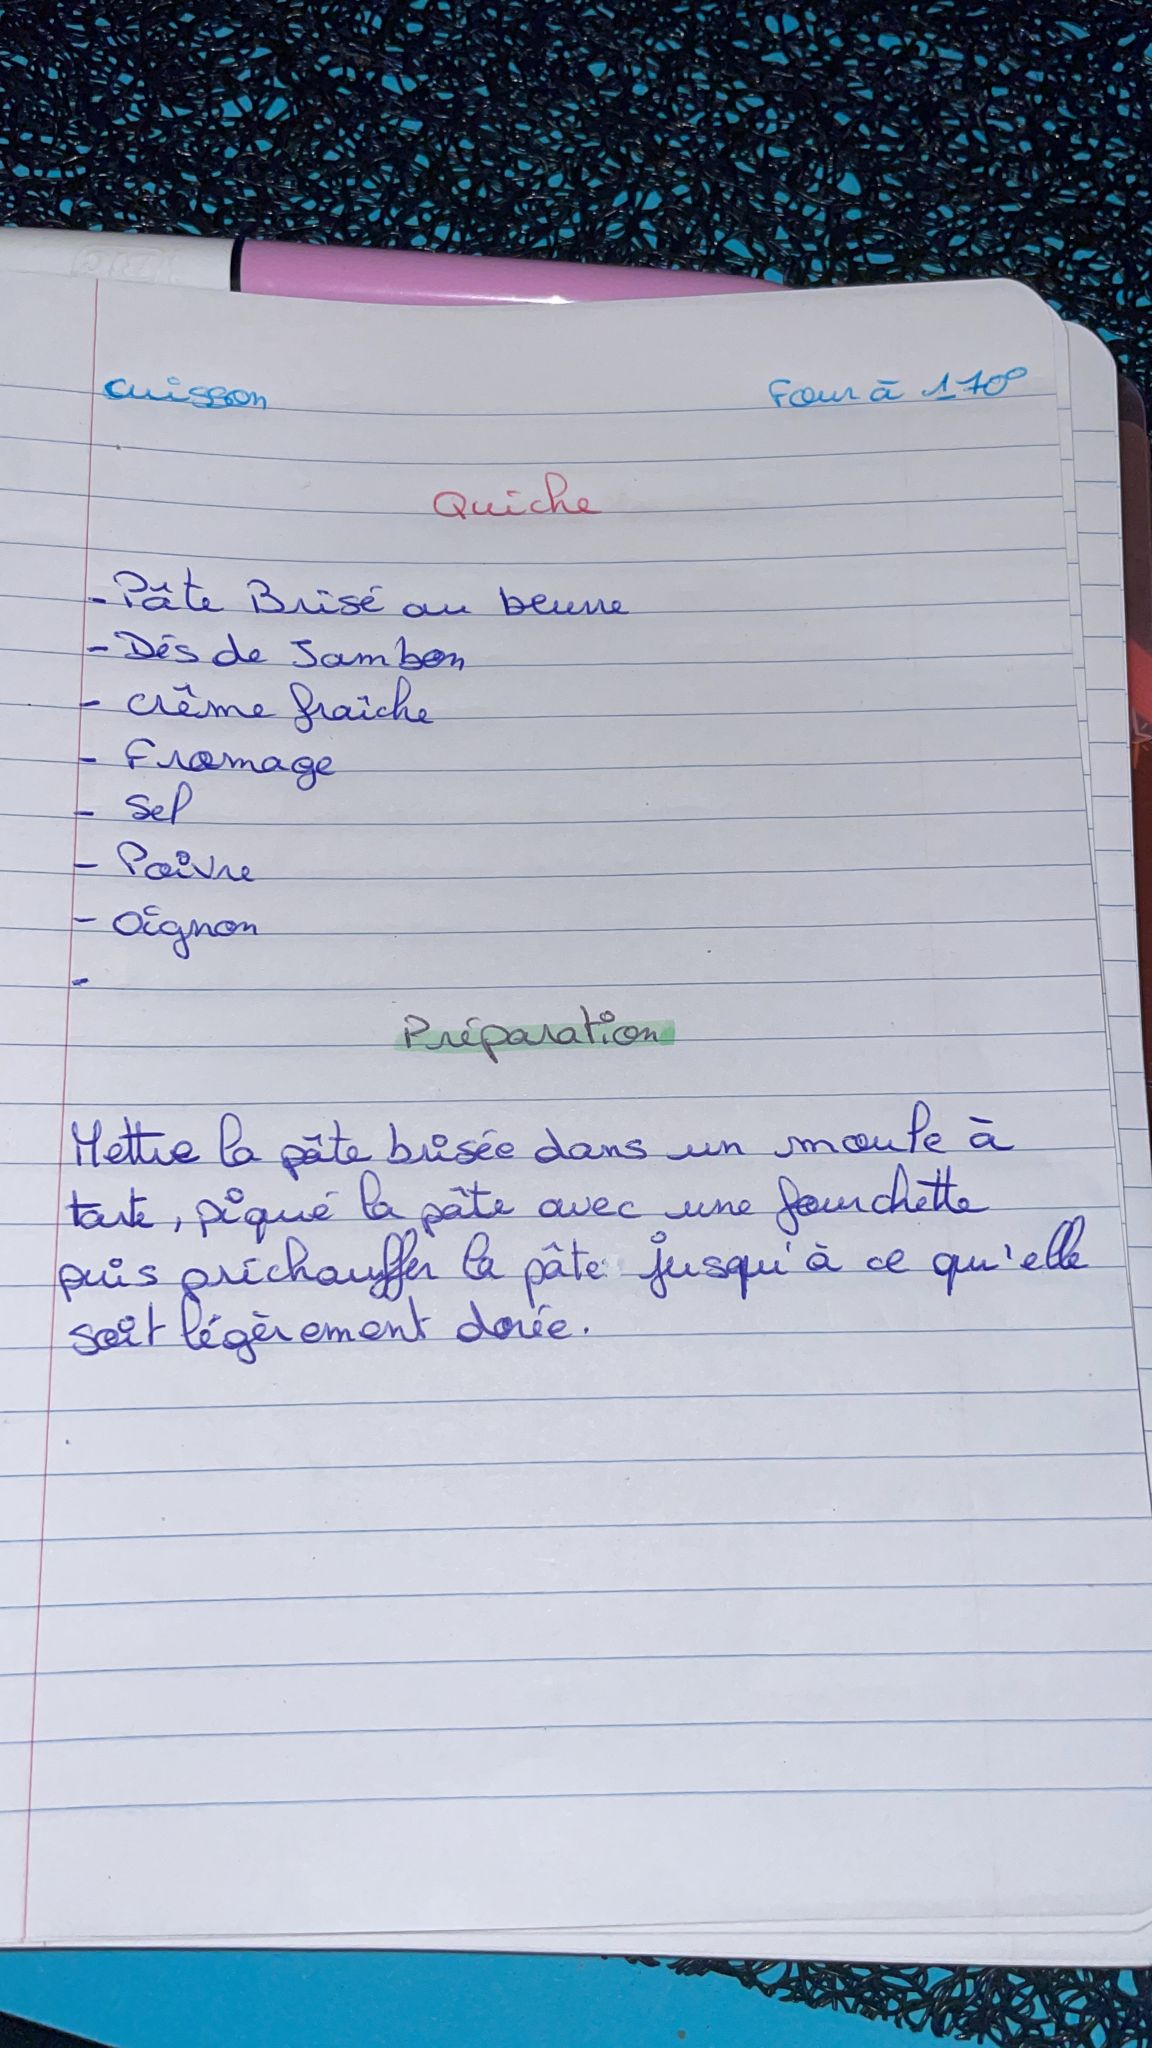 BIC
Cuisson Four à 170°
Quiche
- Pâte Brisé au beurre
- Dés de Jambon
- crême fraîche
- Fromage
- Sel
- Poivre
- Oignon
-
Préparation
Mettre la pâte brisée dans un moule à
tarte, piqué la pâte avec une fourchette
puis préchauffer la pâte jusqu'à ce qu'elle
soit légèrement dorée.